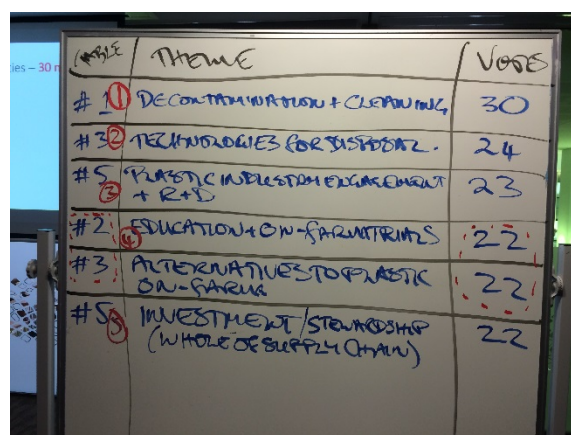 ies – 30 m
TABLE THEME VOTES
# 1 ① DECONTAMINATION + CLEANING 30
#3 ② TECHNOLOGIES FOR DISPOSAL. 24
#5 ③ PLASTIC INDUSTRY ENGAGEMENT + R+D 23
#2 ④ EDUCATION + ON-FARM TRIALS 22
#3 ALTERNATIVES TO PLASTIC
ON-FARM 22
#5 ⑤ INVESTMENT/STEWARDSHIP
(WHOLE OF SUPPLY CHAIN) 22